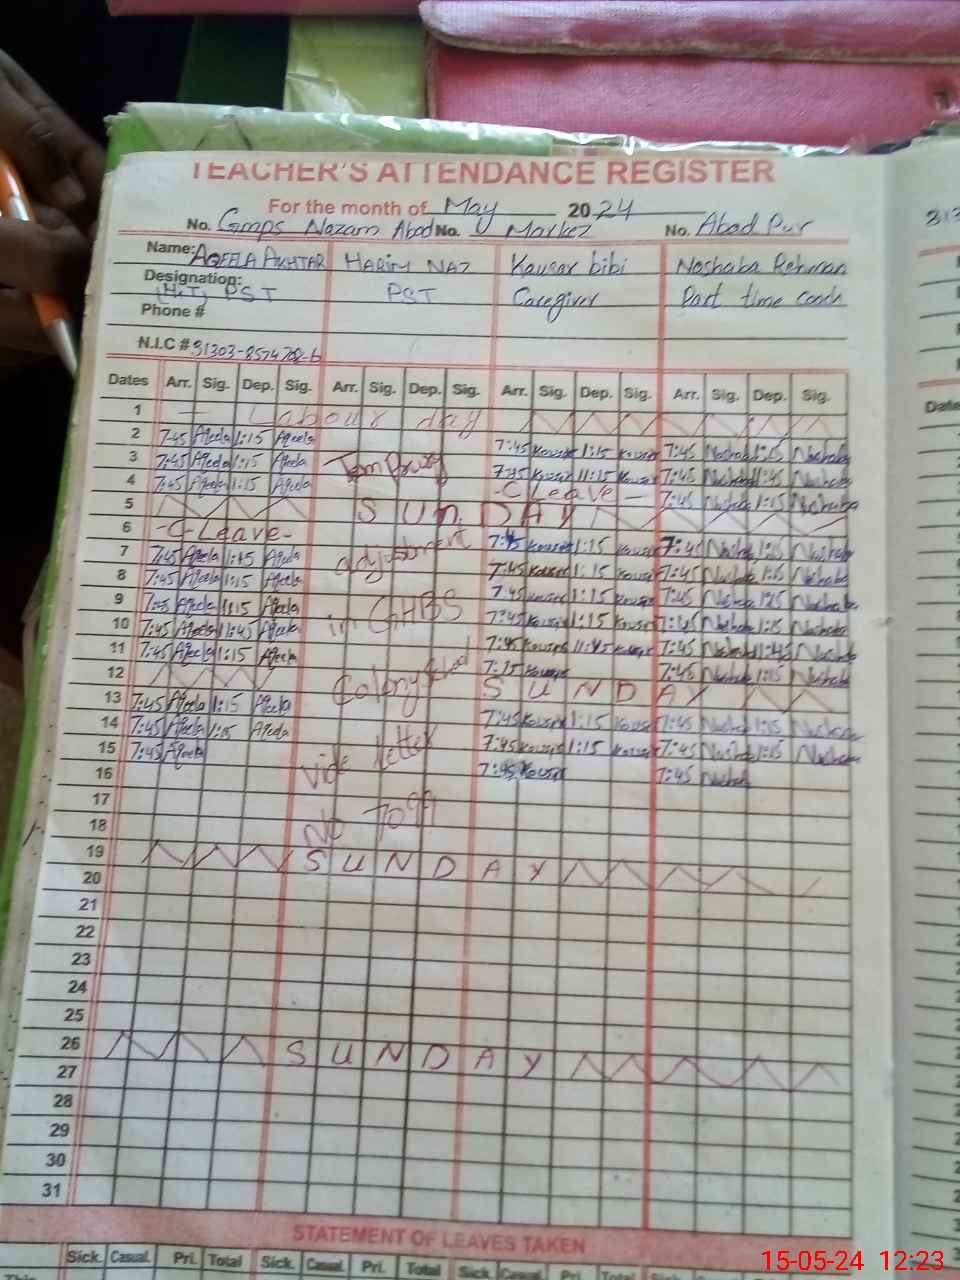 TEACHER'S ATTENDANCE REGISTER
For the month of May 2024
No. Gmps Nazam Abad No. Markez No. Abad Pur
Name: AQEELA AKHTAR HARIM NAZ Kausar bibi Noshaba Rehman
Designation: (H.T) PST PST Caregiver Part time coach
Phone #
N.I.C #
Dates Arr. Sig. Dep. Sig. Arr. Sig. Dep. Sig. Arr. Sig. Dep. Sig. Arr. Sig. Dep. Sig.
1 Labour day
2 7:45 Aqeela 1:15 Aqeela 7:45 Kouser 1:15 Kouser 7:45 Noshaba 1:15 Noshaba
3 7:45 Aqeela 1:15 Aqeela 7:45 Kouser 11:15 Kouser 7:45 Noshaba 11:45 Noshaba
4 7:45 Aqeela 1:15 Aqeela -C Leave- 7:45 Noshaba 1:15 Noshaba
5 SUNDAY
6 -C-Leave- adjustment 7:45 Kouser 1:15 Kouser 7:45 Noshaba 1:15 Noshaba
7 7:45 Aqeela 1:15 Aqeela 7:45 Kouser 1:15 Kouser 7:45 Noshaba 1:15 Noshaba
8 7:45 Aqeela 1:15 Aqeela 7:45 Kouser 1:15 Kouser 7:45 Noshaba Noshaba
9 7:45 Aqeela 1:15 Aqeela in GHBS 7:45 Kouser 1:15 Kouser 7:45 Noshaba 1:15 Noshaba
10 7:45 Aqeela 11:45 Aqeela 7:45 Kouser 11:45 Kouser 7:45 Noshaba 11:45 Noshaba
11 7:45 Aqeela 1:15 Aqeela Colony 7:15 Kouser 7:45 Noshaba 1:15 Noshaba
12 SUNDAY
13 7:45 Aqeela 1:15 Aqeela 7:45 Kouser 1:15 Kouser 7:45 Noshaba 1:15 Noshaba
14 7:45 Aqeela 1:15 Aqeela vide letter 7:45 Kouser 1:15 Kouser 7:45 Noshaba 1:15 Noshaba
15 7:45 Aqeela 7:45 Kouser 7:45 Noshaba
16
17 No 7099
18
19 SUNDAY
20
21
22
23
24
25
26 SUNDAY
27
28
29
30
31
STATEMENT OF LEAVES TAKEN
Sick. Casual. Pri. Total Sick. Casual. Pri. Total Sick. Casual. Pri. Total Sick. Casual. Pri. Total
This
15-05-24 12:23